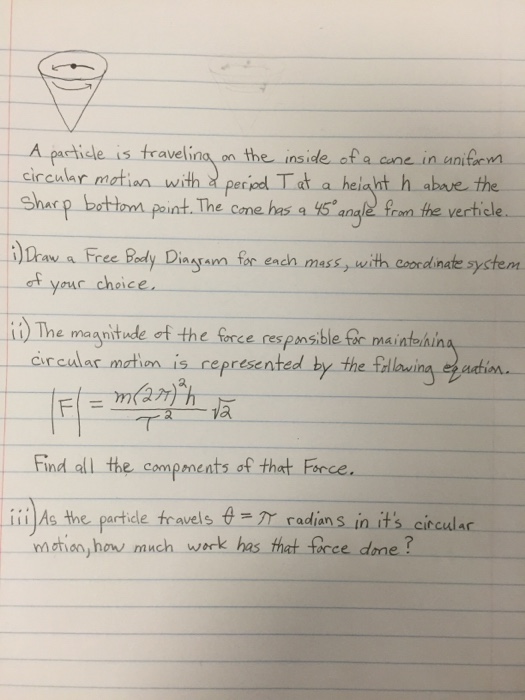 A particle is traveling on the inside of a cone in uniform
circular motion with a period T at a height h above the
Sharp bottom point. The cone has a 45° angle from the verticle.
i) Draw a Free Body Diagram for each mass, with coordinate system
of your choice.
ii) The magnitude of the force responsible for maintaining
circular motion is represented by the following equation.
|F| = m(2π)²h / T² √2
Find all the components of that Force.
iii) As the particle travels θ = π radians in it's circular
motion, how much work has that force done?